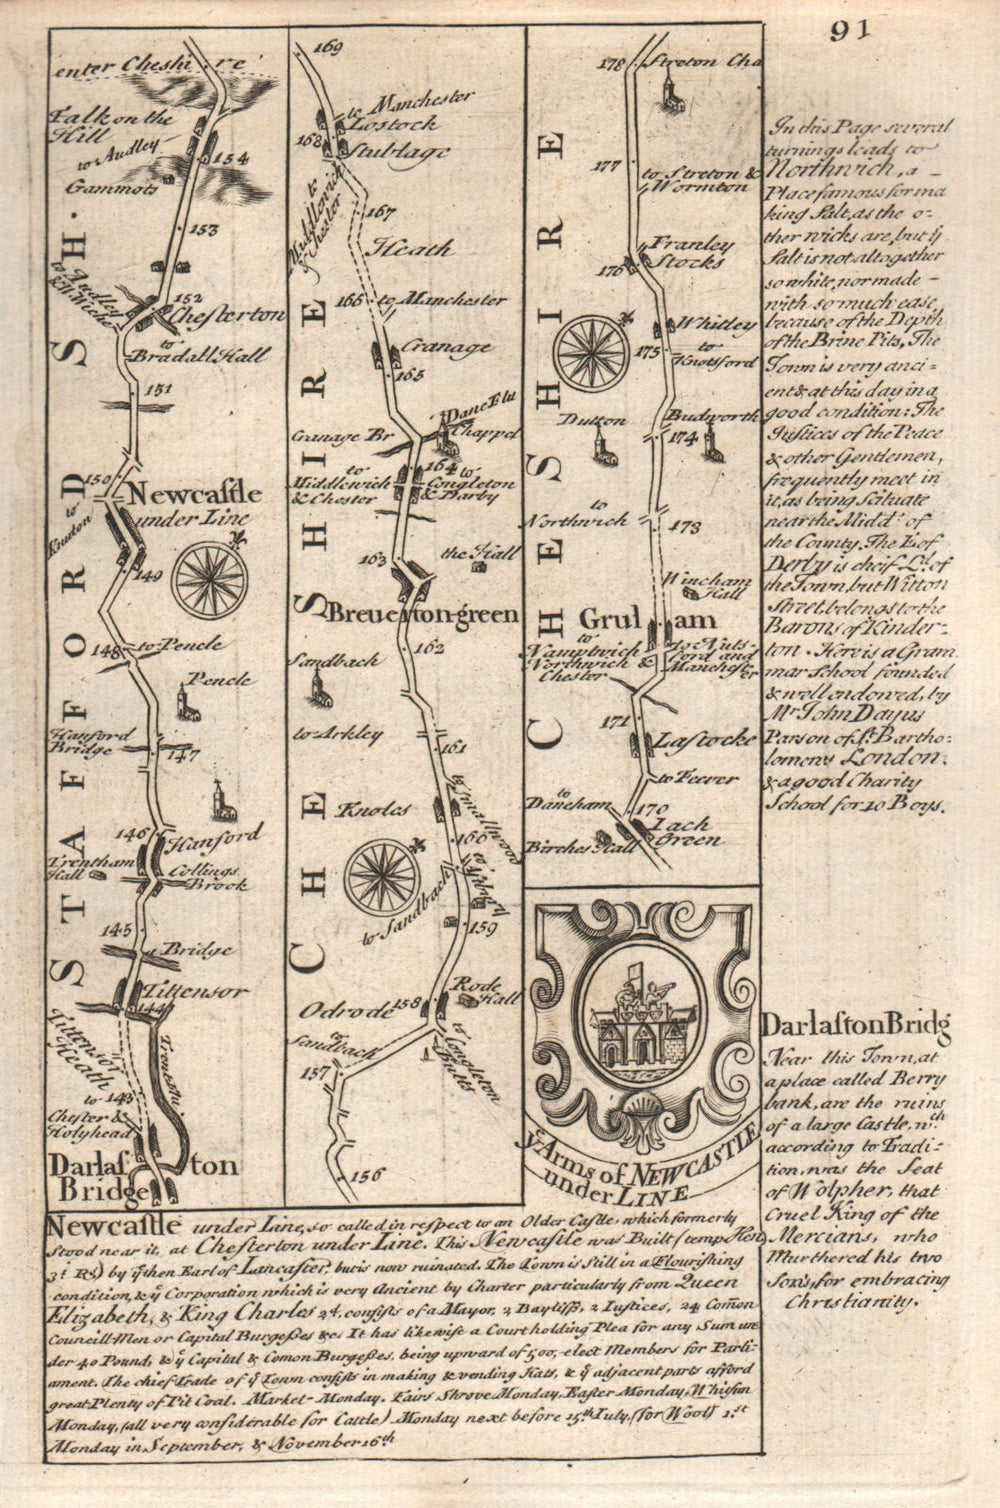 91
enter Cheshire
Talk on the
Hill
to Audley
154
Gammots
153
to Audley
& W. Wiche
152
Chesterton
to
Bradall Hall
151
150
Newcastle
under Line
to
Knuton
149
148
to Pencle
Pencle
Hanford
Bridge
147
146
Hanford
Trentham
Hall
Collings
Brook
145
a Bridge
Tittensor
144
Tittensor
Heath
Trent
143
to
Chester &
Holyhead
Darlaston
Bridge
STAFFORD SH.
169
to Manchester
Lostock
168
Stublage
to
Middlewich
& Chester
167
Heath
166
to Manchester
Cranage
165
Dane Flu
Chappel
Cranage Br
164
to
Congleton
& Darby
to
Middlewich
& Chester
163
the Hall
Breuerton-green
162
Sandbach
to Arkley
161
to Smallwood
Knoles
160
to Sandbach
159
Rode
Hall
Odrode
158
to
Sandbach
to Congleton
157
156
CHESHIRE
178
Streton Cha
177
to Streton &
Wormton
Franley
Stocks
176
Whitley
175
to
Knotsford
Dutton
Budworth
174
to
Northwich
173
Wincham
Hall
Grulam
to
Namptwich
Northwich &
Chester
to Nuts-
ford and
Manchester
171
Lastocke
to Feever
to
Daneham
170
Lach
Green
Birches Hall
CHESHIRE
yͤ Arms of NEWCASTLE
under LINE
In this Page several
turnings leads to
Northwich, a
Place famous for ma
king Salt, as the o-
ther wiches are, but yͤ
Salt is not altogether
so white, nor made
with so much ease,
because of the Depth
of the Brine Pits, The
Town is very anci=
ent & at this day in a
good condition: The
Justices of the Peace
& other Gentlemen,
frequently meet in
it, as being scituate
near the Midd. of
the County. The E. of
Derby is cheif Ld. of
the Town, but Witton
Street, belongs to the
Barons of Kinder-
ton. Here is a Gram
mar School founded
& well endowed, by
Mr. John Dayus
Parson of St. Bartho:
lomews London:
& a good Charity
School for 10 Boys.
Darlaston Bridg
Near this Town, at
a place called Berry
bank, are the ruins
of a large Castle, wch.
according to Tradi-
tion, was the Seat
of Wolpher, that
Cruel King of the
Mercians, who
Murthered his two
Sons, for embracing
Christianity.
Newcastle under Line, so called in respect to an Older Castle, which formerly
stood near it, at Chesterton under Line. This Newcastle was Built (temp Hen
3d. Rs.) by yͤ then Earl of Lancaster, but is now ruinated. The Town is Still in a Flourishing
condition, & yͤ Corporation which is very Ancient by Charter particularly from Queen
Elizabeth, & King Charles 2d. consists of a Mayor, 2 Bayliffs, 2 Justices, 24 Com̄on
Councill-Men or Capital Burgesses &c. It has likewise a Court holding Plea for any Sum un
der 40 Pound, & yͤ Capital & Comon Burgesses, being upward of 500, elect Members for Parli-
ament. The chief Trade of yͤ Town consists in making & vending Hats, & yͤ adjacent parts afford
great Plenty of Pit Coal. Market-Monday. Fairs Shrove Monday, Easter Monday, Whitsun
Monday, (all very considerable for Cattle) Monday next before 15th July, (for Wool) 1st
Monday in September, & November 16th